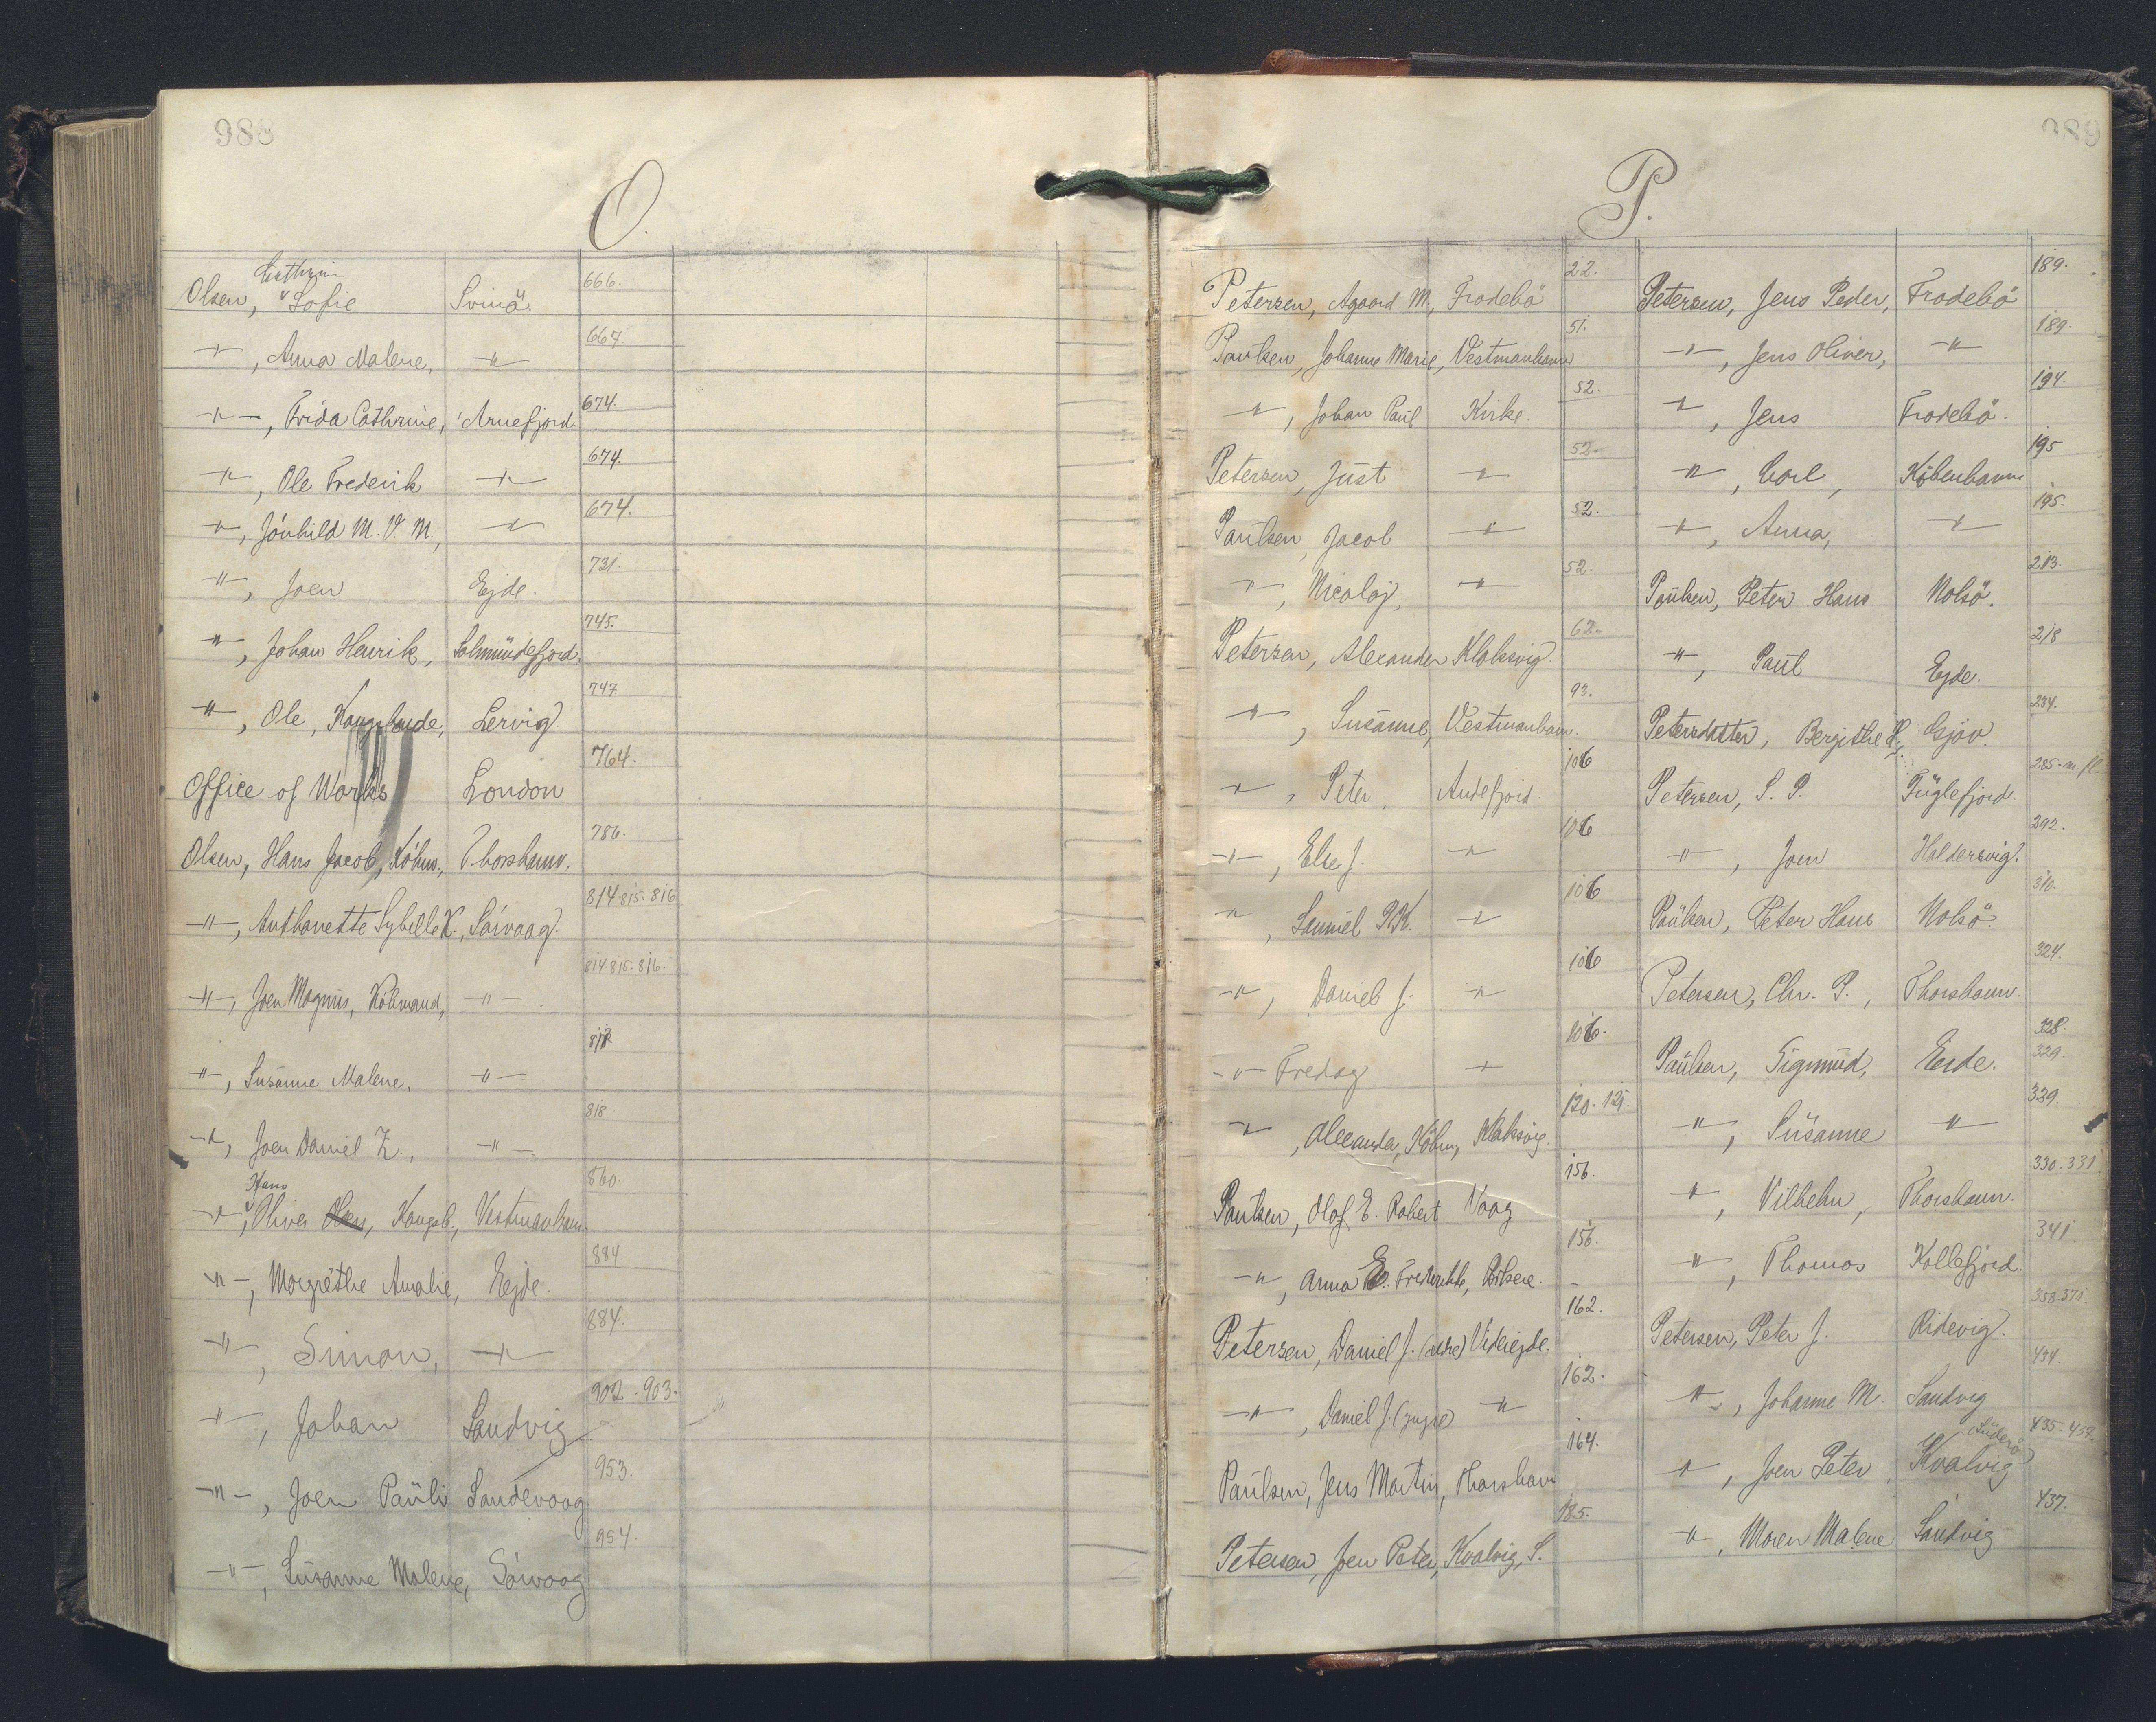 988
O.
Cathrin
Olsen, v Sofie Svinö. 666.
-"-, Anna Malene, -"- 667
-"-, Frida Cathrine, Arnefjord. 674.
-"-, Ole Frederik -"- 674.
-"-, Jónhild M. V. M., -"- 674.
-"-, Joen Ejde. 731.
-"-, Johan Henrik, Solmundefjord. 745.
-"-, Ole, Kongsbonde, Lervig. 747
Office of Works London 764.
Olsen, Hans Jacob, Köbm., Thorshavn. 786.
-"-, Anthonette Sybille K., Sörvaag. 814-815-816
-"-, Joen Magnus, Köbmand, -"- 814-815-816.
-"-, Susanne Malene, -"-
-"-, Joen Daniel Z., -"- 818
Hans
-"-, v Oliver Kongsb., Vestmanhavn. 860.
-"-, Margrethe Amalie, Ejde. 884.
-"-, Simon, -"- 884.
-"-, Johan Sandvig 902-903.
-"-, Joen Pauli Sandevaag 953.
-"-, Susanne Malene, Sörvaag 954.
989
P.
Petersen, Agaard M., Frodebö 22.
Paulsen, Johanne Marie, Vestmanhavn 51.
-"-, Johan Paul Kirke. 52.
Petersen, Just -"- 52.
Paulsen, Jacob -"- 52.
-"-, Nicolaj, -"- 52.
Petersen, Alexander Klaksvig. 62.
-"-, Susanne, Vestmanhavn. 93.
-"-, Peter, Andefjord. 106
-"-, Else J. -"- 106
-"-, Samuel P.K. -"- 106
-"-, Daniel J. -"- 106
-"- Fredag -"- 106.
-"-, Alexander, Köbm., Klaksvig. 120-121.
Paulsen, Olof E. Robert Vaag 156.
-"-, Anna E. Frederikke, 156.
Petersen, Daniel J. (ældre) Videreejde. 162.
-"-, Daniel J. (yngre) -"- 162.
Paulsen, Jens Martin, Thorshavn 164.
Petersen, Joen Peter, Kvalvig, S. 185.
Petersen, Jens Peder, Frodebö 189.
-"-, Jens Oliver, -"- 189.
-"-, Jens Frodebö. 194.
-"-, Carl, Köbenhavn 195
-"-, Anna, -"- 195.
Paulsen, Peter Hans Nolsö. 213.
-"-, Paul Ejde. 218
Petersdatter, Bergithe H., Gjov. 234.
Petersen, S. P. Fuglefjord. 285-m. fl.
-"-, Joen Haldersvig. 292.
Paulsen, Peter Hans Nolsö. 310.
Petersen, Chr. P., Thorshavn. 324.
Paulsen, Sigmund, Ejde. 328. 329.
-"-, Susanne -"- 329.
-"-, Vilhelm, Thorshavn. 330-331.
-"-, Thomas Kollefjord. 341.
Petersen, Peter J. Ridevig. 358-371.
-"-, Johanne M. Sandvig 434.
-"-, Joen Peter, Kvalvig (Suderö) 435-437.
-"-, Maren Malene Sandvig 437.